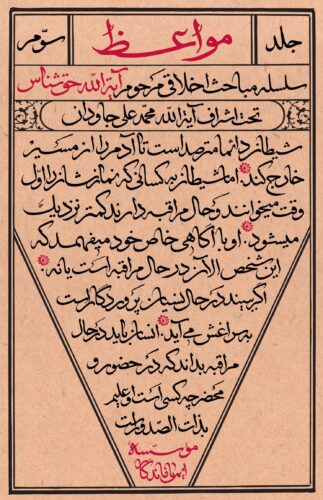 جلد مواعظ سوّم
سلسله مباحث اخلاقی مرحوم آیة الله حق شناس
تحت اشراف آیة الله محمد علی جاودان
شیطان دائما مترصد است تا آدم را از مسیر
خارج کند. اما شیطان به کسانی که نمازشان را اول
وقت میخوانند و حال مراقبه دارند کمتر نزدیک
میشود. او با آگاهی خاص خود میفهمد که
این شخص الآن در حال مراقبه است یا نه.
اگر ببیند در حال نسیان پروردگار است
به سراغش می آید. انسان باید در حال
مراقبه بداند که در حضور و
محضر چه کسی است او علیم
بذات الصدور است
موسسه